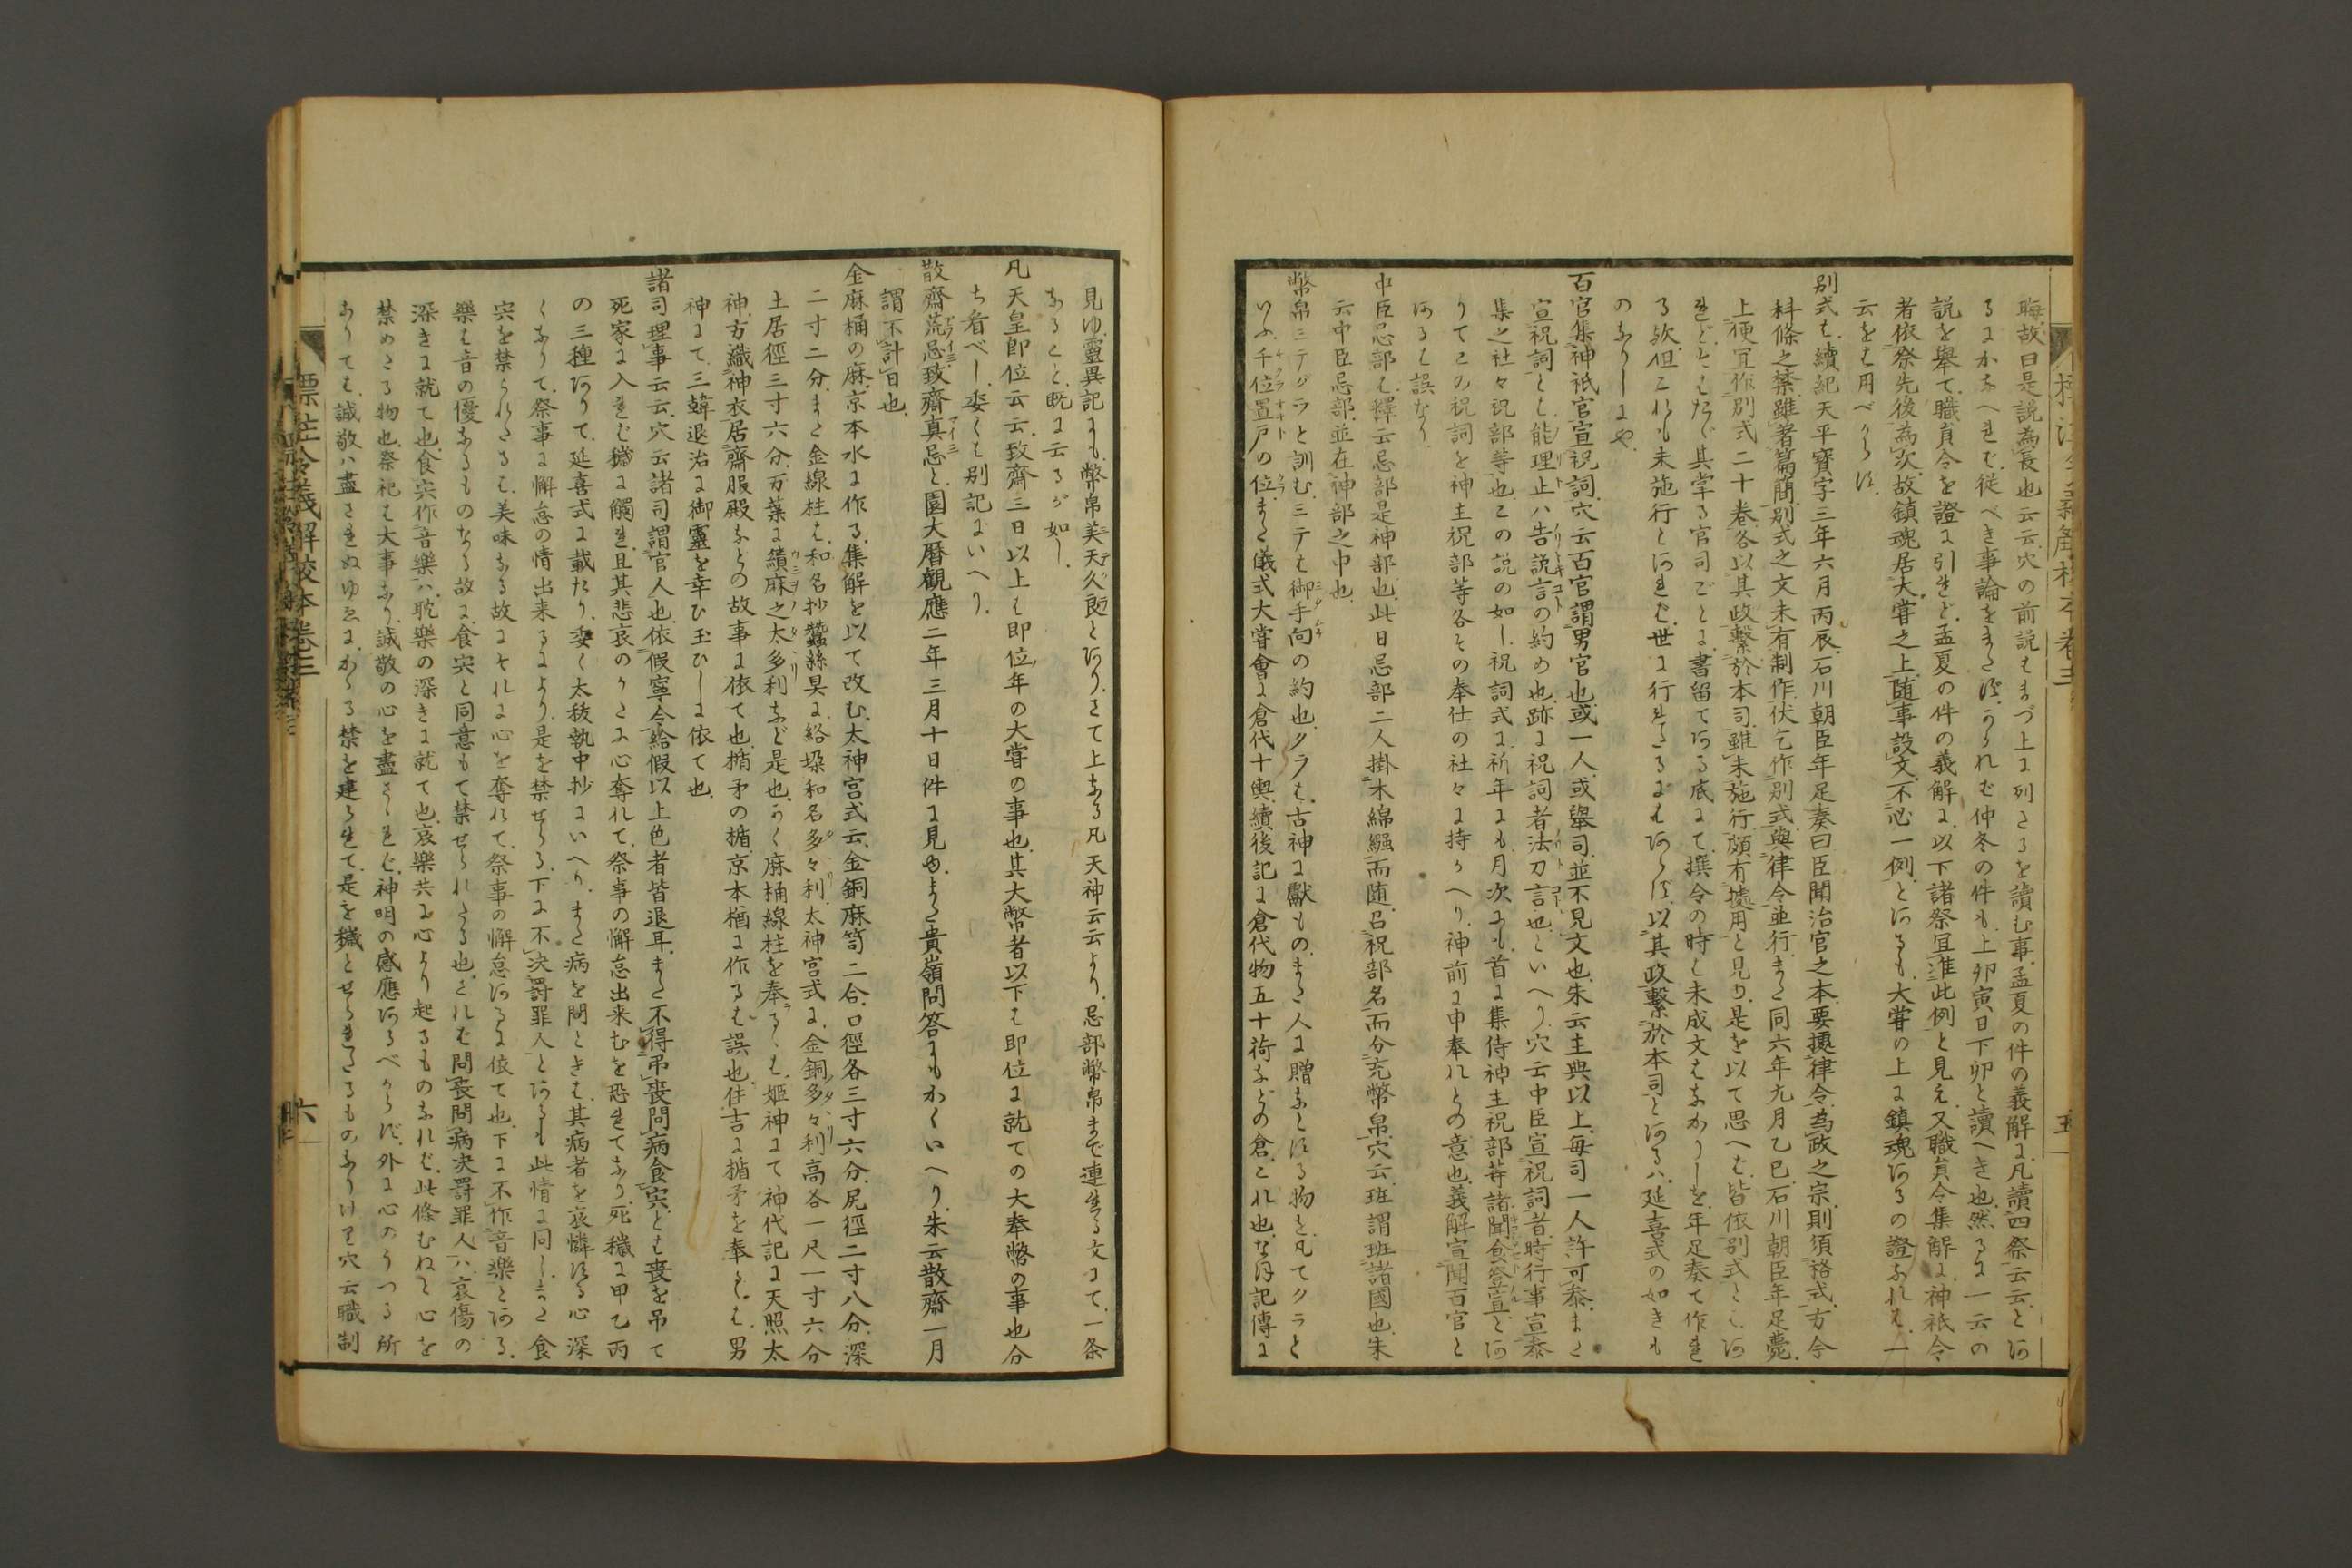 晦故曰是説為長也云云穴の前説もまづ上に列さるを讀む事孟夏の件の義解に凡讀四祭云云とあ
るにかなへれば従べき事論をまたずかゝれば仲冬の件も上卯寅日下卯と讀べき也然るに一云の
説を擧て職員令を證に引れど孟夏の件の義解に以下諸祭冝准此例と見え又職員令集解に神祇令
者依祭先後為次故鎮魂居大甞之上随事設文不必一例とあるも大甞の上に鎮魂あるの證なれば一
云をば用べからず
別式は續紀天平寶字三年六月丙辰石川朝臣年足奏曰臣聞治官之本要據律令為政之宗則須格式方今
科條之禁雖著篇簡別式之文未有制作伏乞作別式與律令並行また同六年九月乙巳石川朝臣年足薨
上便冝作別式二十卷各以其政繋於本司雖未施行頗有據用と見り是を以て思へば皆依別式とはあ
れどそはたゞ其掌る官司ごとに書留てある底にて撰令の時は未成文はなかりしを年足奏て作れ
る欤但これも未施行とあれば世に行れたるにはあらず以其政繋於本司とあるハ延喜式の如きも
のなりしにや
百官集神祇官宣祝詞穴云百官謂男官也或一人或擧司並不見文也朱云主典以上毎司一人許可參また
宣祝詞とは能理止ハ告説言の約め也跡に祝詞者法刀言也といへり穴云中臣宣祝詞者時行事宣参
集之社々祝部等也この説の如し祝詞式に祈年にも月次にも首に集侍神主祝部等諸聞食登宣とあ
りてこの祝詞を神主祝部等各その奉仕の社々に持かへり神前に申奉れとの意也義解宣聞百官と
あるは誤なり
中臣忌部は釋云忌部是神部也此日忌部二人掛木綿繦而随召祝部名而分充幣帛穴云班謂班諸國也朱
云中臣忌部並在神部之中也
幣帛ミテグラと訓むミテは御手向の約也クラは古神に獻ものまた人に贈などする物を凡てクラと
いふ千位置戸の位また儀式大甞會に倉代十輿續後記に倉代物五十荷などの倉これ也なほ記傳に
見ゆ靈異記にも幣帛美天久良とありさて上なる凡天神云云より忌部幣帛まで連れる文にて一条
なること既に云るが如し
凡天皇即位云云致齋三日以上は即位年の大甞の事也其大幣者以下は即位に就ての大奉幣の事也分
ち看べし委くは別記にいへり
散齋荒忌致齋真忌と園大暦觀應二年三月十日件に見ゆまた貴嶺問答にもかくいへり朱云散齋一月
謂不計日也
金麻桶の麻京本水に作る集解を以て改む太神宮式云金銅麻笥二合口徑各三寸六分尻徑二寸八分深
二寸二分また金線柱は和名抄蠶絲具に絡垜和名多々利太神宮式に金銅多々利高各一尺一寸六分
土居徑三寸六分万葉に續麻之太多利など是也かく麻桶線柱を奉るは姫神にて神代記に天照太
神方織神衣居齋服殿などの故事に依て也楯矛の楯京本楢に作るは誤也住吉に楯矛を奉るは男
神にて三韓退治に御靈を幸ひ玉ひしに依て也
諸司理事云云穴云諸司謂官人也依假寧令給假以上色者皆退耳また不得弔喪問病食宍とは喪を吊て
死家に入れば穢に觸れ且其悲哀のかたに心奪れて祭事の懈怠出来むを恐れてなり死穢に甲乙丙
の三種ありて延喜式に載たり委く太祓執中抄にいへりまた病を問ときは其病者を哀憐する心深
くなりて祭事に懈怠の情出来るより是を禁せる下に不决罸罪人とあるも此情に同しまた食
宍を禁られたるは美味なる故にそれに心を奪れて祭事の懈怠あるに依て也下に不作音樂とある
樂は音の優なるものなる故に食宍と同意もて禁せられたる也されば問喪問病决罸罪人ハ哀傷の
深きに就て也食宍作音樂ハ耽樂の深きに就て也哀樂共に心より起るものなれば此條むねと心を
禁めたる物也祭祀は大事なり誠敬の心を盡さゝれば神明の感應あるべからず外に心のうつる所
ありては誠敬ハ盡されぬゆゑにかゝる禁を建られて是を穢とせられたるものなりけり穴云職制
標注令義解校本卷三
六
五